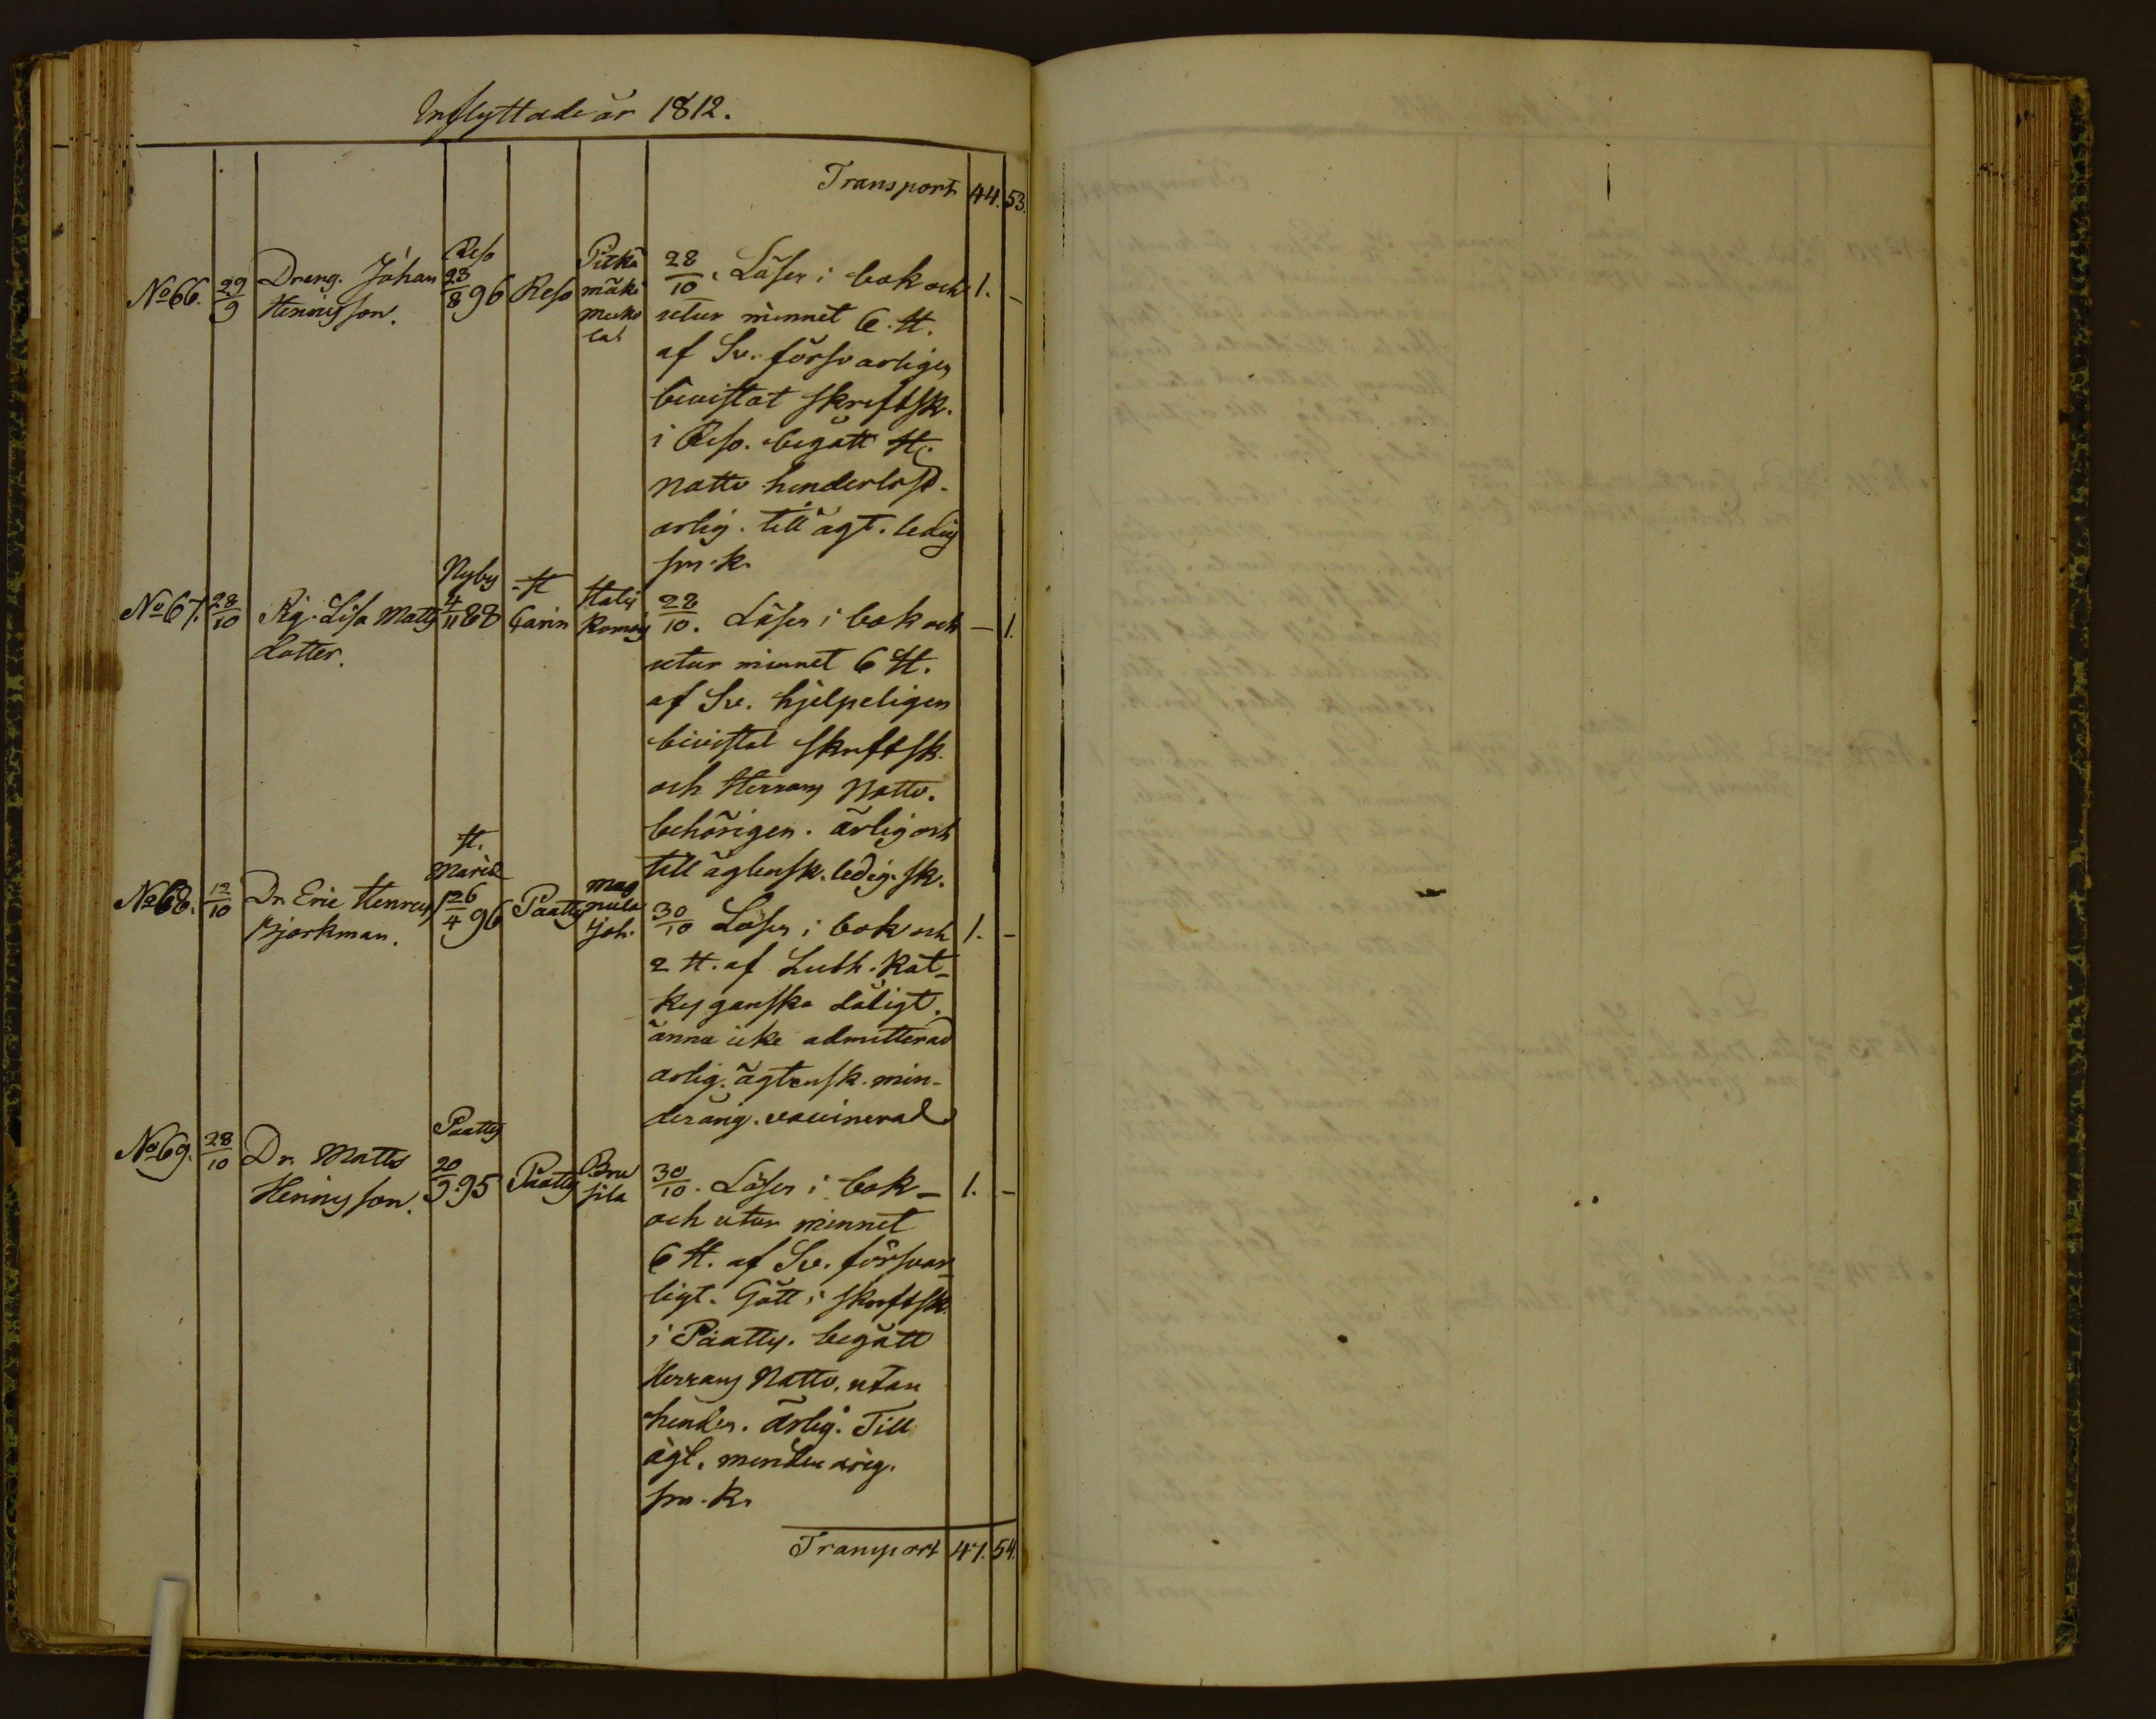 Inflyttade år 1812.
Transport 44. 53.
No 66. 29/9 Dräng. Johan Henrigsson. Reso 23/8 96 Reso Pitkä mäki
28/10. Läser i bok och 1. –
utur minnet 6. H.
af Sv. försvarligen
bevistat skriftsk.
i Reso. begått H.
Nattv hinderlöst.
ärlig. till ägt. ledig
sm. k.
No 67. 28/10 Pig. Lisa Matts dotter. Nyby 4/11 88 H Carin
28/10. Läser i bok och – 1.
utur minnet 6 H.
af Sv. hjelpeligen
bivistat skriftsk.
och Herrans Nattv.
behörigen. ärlig och
till äglensk. ledig. sk.
No 68. 12/10 Dr. Eric Henrics Björkman. H. Mariæ 26/4 96 Paatts Mag nula Joh.
30/10 Läser i bok och 1. –
2 H. af Luth. Kat-
kes ganska dåligt.
ännu icke admitterad
ärlig. ägtensk. min-
derårig. vaccinerad
No 69. 28/10 Dr. Matts Henrigsson. Paatts 20/9. 95 Paatts
30/10. Läser i bok – 1. –
och utur minnet
6 H. af Sv. försvar-
ligt. Gått i skriftsk.
i Paatts. begått
Herrans Nattv. utan
hinder. ärlig. Till
ägt. minder årig.
sm. k.
Transport 47. 54.